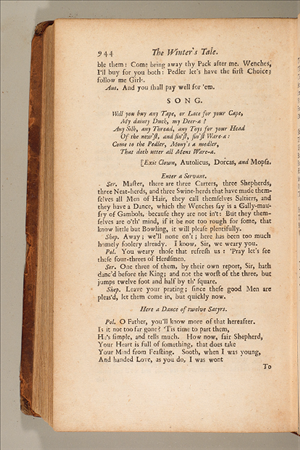 944 The Winter's Tale.
ble them: Come bring away thy Pack after me. Wenches,
I'll buy for you both: Pedler let's have the first Choice;
follow me Girls.
Aut. And you shall pay well for 'em.
SONG.
Will you buy any Tape, or Lace for your Cape,
My dainty Duck, my Dear-a?
Any Silk, any Thread, any Toys for your Head
Of the new'st, and fin'st, fin'st Wear-a:
Come to the Pedler, Mony's a medler,
That doth utter all Mens Ware-a.
[Exit Clown, Autolicus, Dorcas, and Mopsa.
Enter a Servant.
Ser. Master, there are three Carters, three Shepherds,
three Neat-herds, and three Swine-herds that have made them-
selves all Men of Hair, they call themselves Saltiers, and
they have a Dance, which the Wenches say is a Gally-mau-
fry of Gambols, because they are not in't: But they them-
selves are o'th' mind, if it be not too rough for some, that
know little but Bowling, it will please plentifully.
Shep. Away; we'll none on't; here has been too much
homely foolery already. I know, Sir, we weary you.
Pol. You weary those that refresh us: 'Pray let's see
these four-threes of Herdsmen.
Ser. One three of them, by their own report, Sir, hath
danc'd before the King; and not the worst of the three, but
jumps twelve foot and half by th' square.
Shep. Leave your prating; since these good Men are
pleas'd, let them come in, but quickly now.
Here a Dance of twelve Satyrs.
Pol. O Father, you'll know more of that hereafter.
Is it not too far gone? 'Tis time to part them,
He's simple, and tells much. How now, fair Shepherd,
Your Heart is full of something, that does take
Your Mind from Feasting. Sooth, when I was young,
And handed Love, as you do, I was wont
To